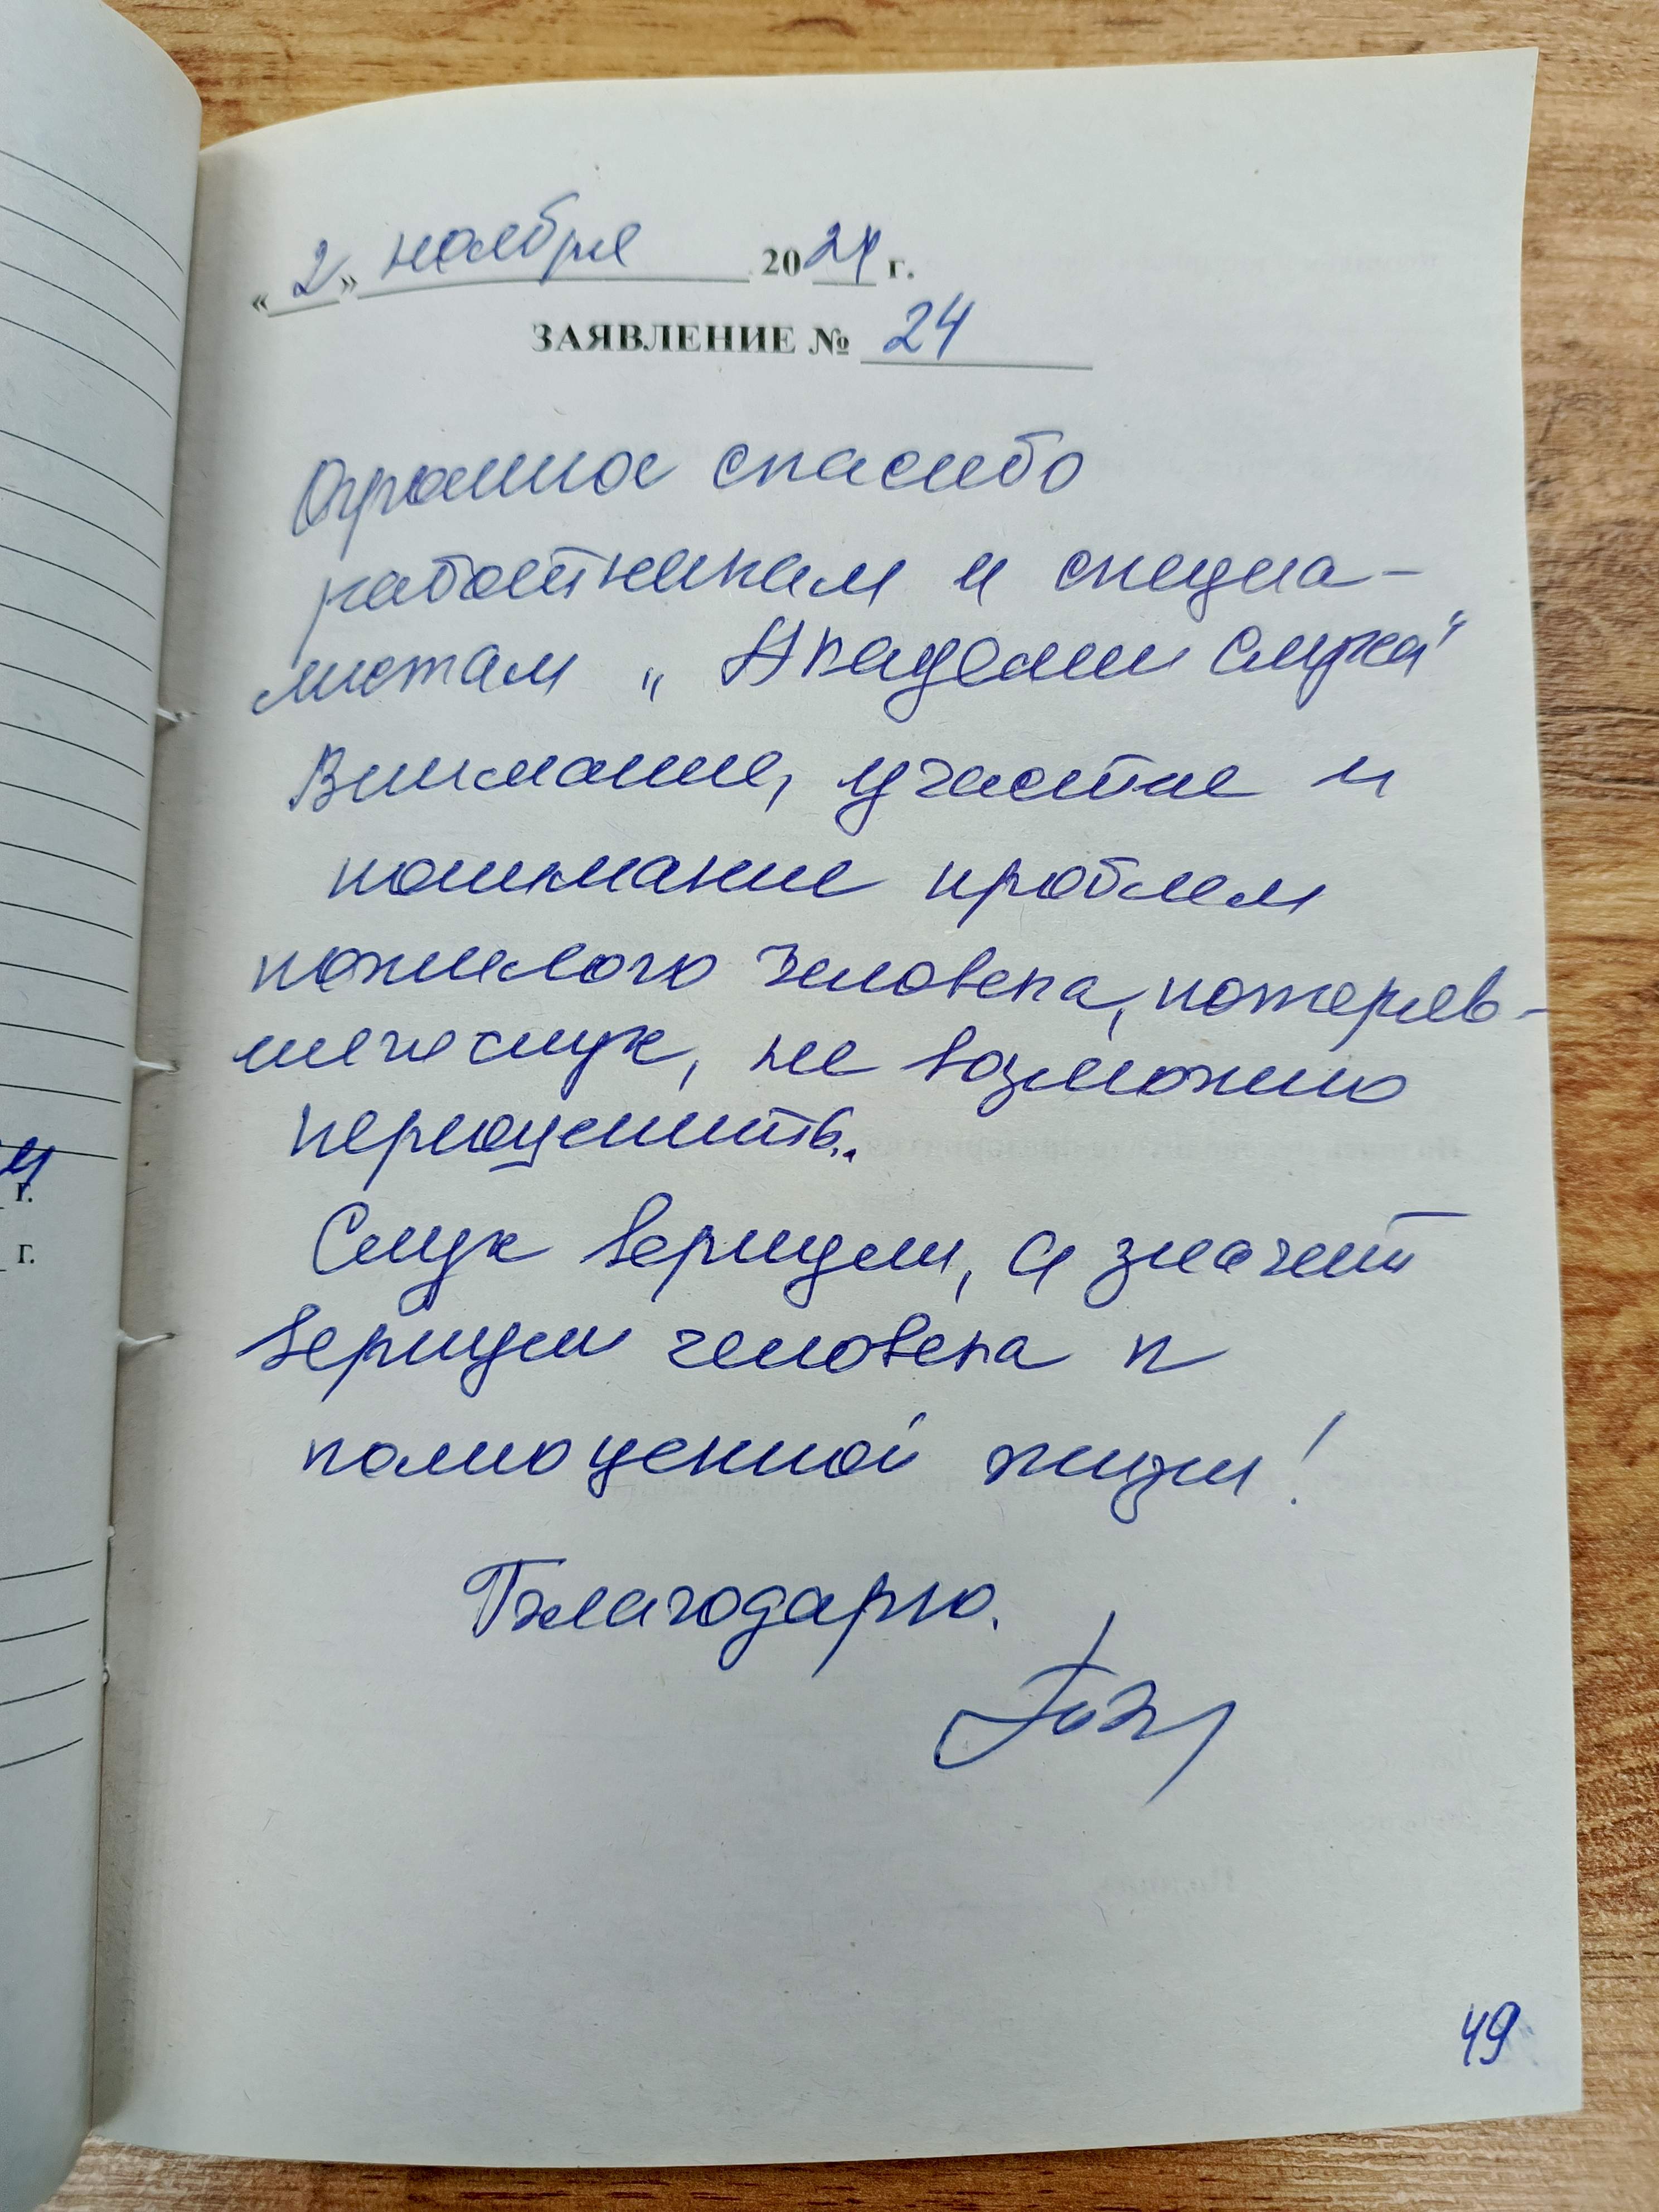 « 2 » ноября 2024 г.
ЗАЯВЛЕНИЕ № 24
Огромное спасибо
работникам и специа-
листам „Академии Слуха"
Внимание, участие и
понимание проблем
пожилого человека, потеряв-
шего слух, не возможно
переоценить.
Слух вернули, а значит
вернули человека к
полноценной жизни!
Благодарю.
49
г.
г.